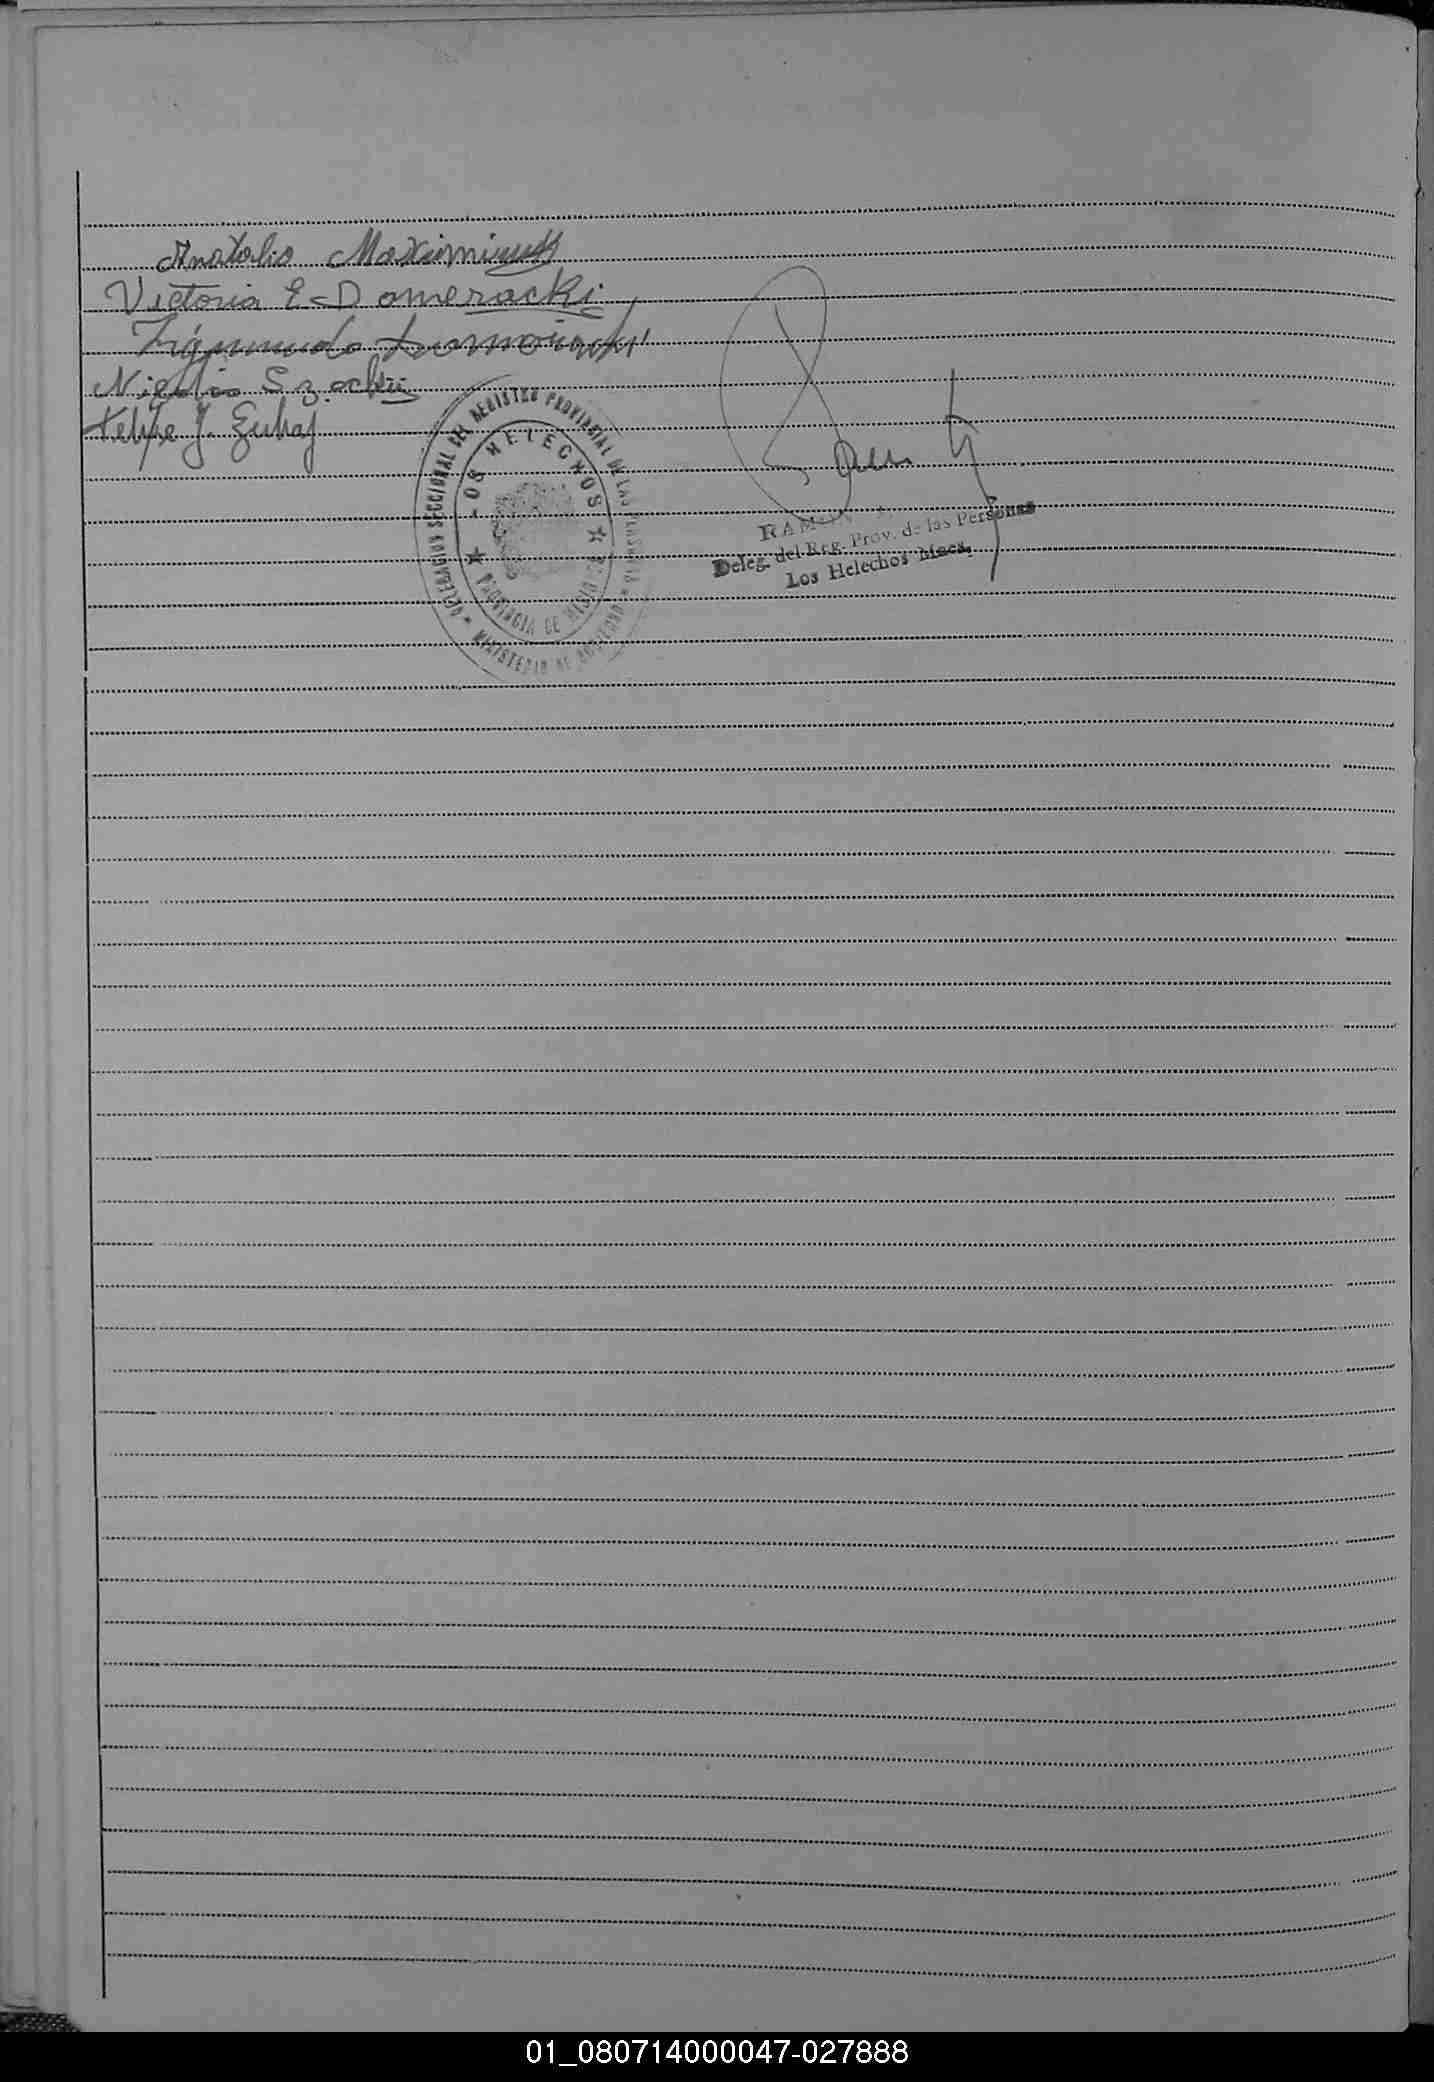 Anatolio
Victoria E. Domeracki
Nicolás Szachri
Felipe J. Zuhaj
DELEGACION SECCIONAL DEL REGISTRO PROVINCIAL DE LAS PERSONAS
LOS HELECHOS
PROVINCIA DE MISIONES
MINISTERIO DE GOBIERNO
RAMON
Deleg. del Reg. Prov. de las Personas
Los Helechos Mnes.
01_080714000047-027888